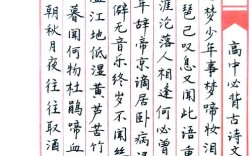 高中必背古诗文
梦少年事梦啼妆泪
琶已叹息又闻此语重
涯沦落人相逢何必曾
年辞帝京谪居卧病浔
僻无音乐终岁不闻丝
湓江地低湿黄芦苦竹
暮闻何物杜鹃啼血
朝秋月夜往往取酒